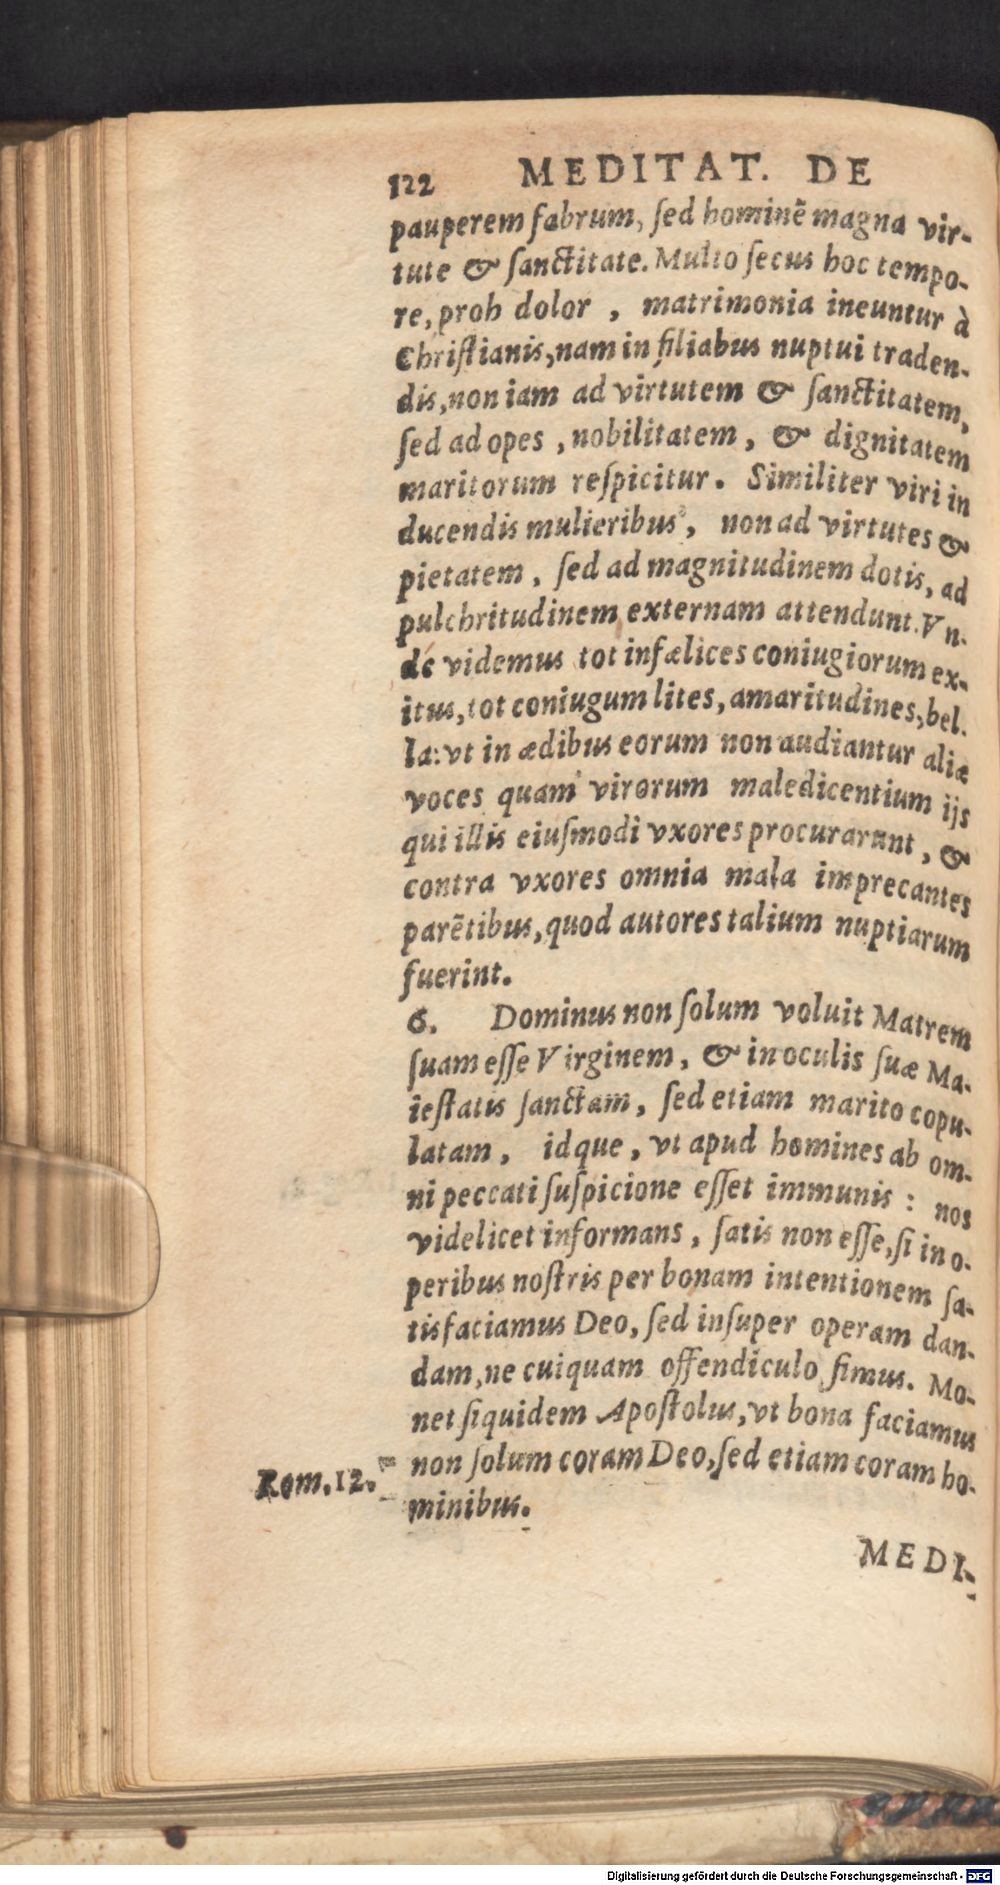 122 MEDITAT. DE
pauperem fabrum, ſed hominē magna vir-
tute & ſanctitate. Multo ſecus hoc tempo-
re, proh dolor , matrimonia ineuntur à
Chriſtianis, nam in filiabus nuptui traden-
dis, non iam ad virtutem & ſanctitatem,
ſed ad opes , nobilitatem , & dignitatem
maritorum reſpicitur. Similiter viri in
ducendis mulieribus, non ad virtutes &
pietatem , ſed ad magnitudinem dotis, ad
pulchritudinem externam attendunt. Vn-
de videmus tot infælices coniugiorum ex-
itus, tot coniugum lites, amaritudines, bel-
la: vt in ædibus eorum non audiantur aliæ
voces quam virorum maledicentium ijs
qui illis eiuſmodi vxores procurarunt , &
contra vxores omnia mala imprecantes
parētibus, quod autores talium nuptiarum
fuerint.
6. Dominus non ſolum voluit Matrem
ſuam eſſe Virginem , & in oculis ſuæ Ma-
ieſtatis ſanctam , ſed etiam marito copu-
latam , idque , vt apud homines ab om-
ni peccati ſuſpicione eſſet immunis : nos
videlicet informans , ſatis non eſſe, ſi in o-
peribus noſtris per bonam intentionem ſa-
tisfaciamus Deo, ſed inſuper operam dan-
dam, ne cuiquam offendiculo ſimus. Mo-
net ſiquidem Apoſtolus, vt bona faciamus
Rom. 12. non ſolum coram Deo, ſed etiam coram ho-
minibus.
MEDI-
Digitalisierung gefördert durch die Deutsche Forschungsgemeinschaft - DFG